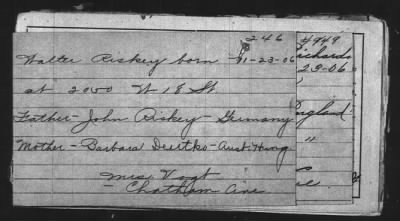 246
Walter Riskey born 11-23-06
at 2050 W 18 St
Father - John Riskey - Germany
Mother - Barbara - Aust Hung
Mrs Vogt
- Chatham Ave
4949
Richards
23-06
England
"